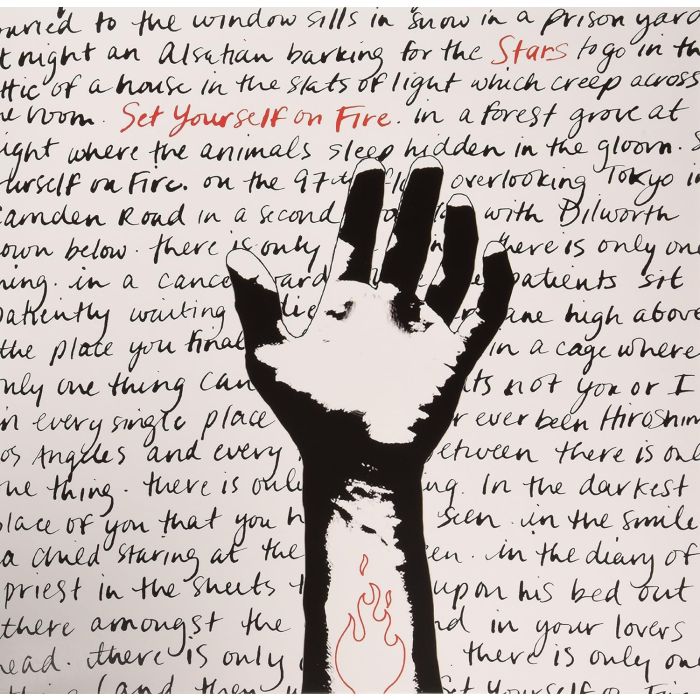 to the window sills in snow in a prison yard
night an Alsatian barking for the Stars to go in the
of a house in the slats of light which creep across
room. Set Yourself on Fire. in a forest grove at
where the animals sleep hidden in the gloom. S
on Fire. on the 97th overlooking Tokyo in
Camden Road in a second with Dilworth
own below. there is only there is only one
in a cance ard patients sit
patiently waiting ane high above
the place you final in a cage where
only one thing can ts not you or I
in every single place r ever been Hiroshim
os Angeles and every etween there is onl
ne thing. there is onl ng. In the darkest
place of you that you h seen. in the smile
a child staring at the en. in the diary of
priest in the sheets upon his bed out
there amongst the nd in your lovers
ead. there is only there is only on
(and then Set Yourself on Fir